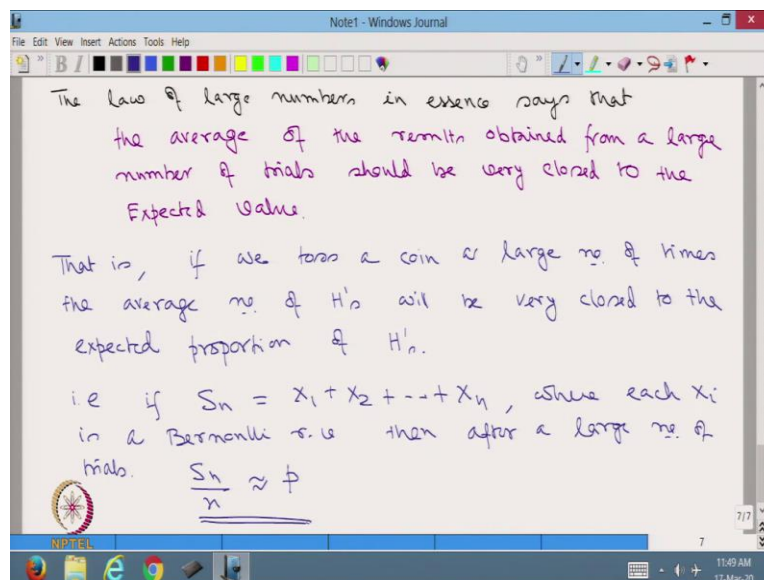 Note1 - Windows Journal
File Edit View Insert Actions Tools Help
B I
The law of large numbers in essence says that
the average of the results obtained from a large
number of trials should be very closed to the
Expected value.
That is, if we toss a coin a large no. of times
the average no. of H's will be very closed to the
expected proportion of H's.
i.e if Sn = X1 + X2 + --- + Xn, where each Xi
is a Bernoulli r.v then after a large no. of
trials.
Sn/n ≈ p
7/7
NPTEL
7
11:49 AM
17-Mar-20